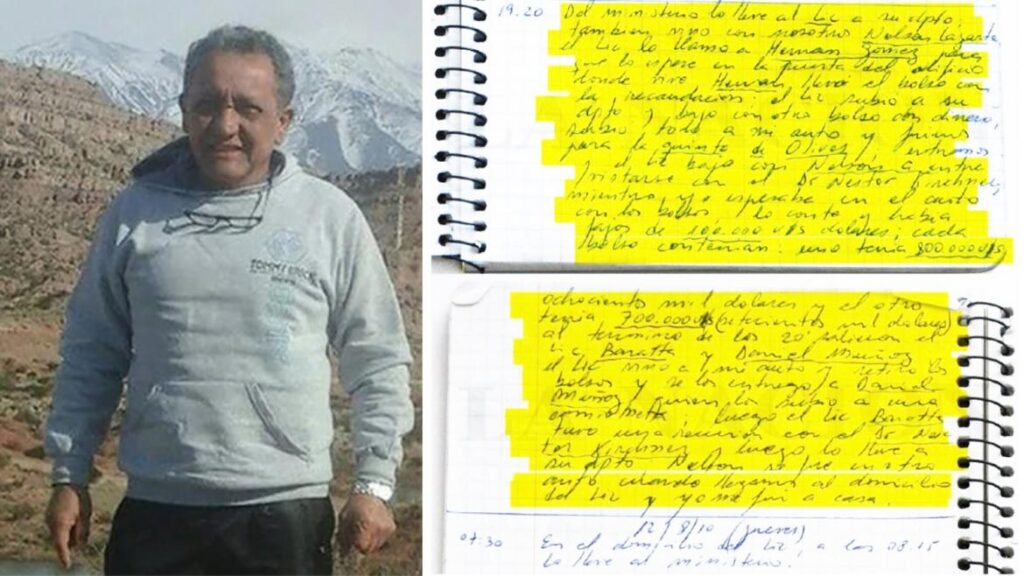 TOMMY
19.20 Del ministerio lo lleve al Lic a su dpto,
tambien vino con nosotros Nelson Lazarte
el Lic lo llamo a Hernan Gomez para
que lo espere en la puerta del edificio
donde vive Hernan llevó el bolso con
la recaudacion; el Lic subio a su
dpto y bajo con otro bolso con dinero,
todo a mi auto y fuimos
para la quinta de Olivos y entramos
y el Lic bajo con Nelson a entre
vistarse con el Dr Nestor Kirchner,
mientras yo esperaba en el auto
con los bolsos, lo conte y habia
fajos de 100.000 U$S dolares; cada
bolso contenian: uno tenia 800.000 U$S
ochocientos mil dolares y el otro
tenia 700.000 U$S (setecientos mil dolares)
al termino de los 20' salieron el
Lic Baratta y Daniel Muñoz
el Lic vino a mi auto y retiro los
bolsos y se los entrego a Daniel
Muñoz, quien los subio a una
camioneta; luego el Lic Baratta
tuvo una reunion con el Dr Nes
tor Kirchner y luego lo lleve a
su dpto. Nelson se fue en otro
auto cuando llegamos al domicilio
del Lic y yo me fui a casa.
12/8/10 (jueves)
07:30 En el domicilio del Lic, a las 08:15
lo lleve al ministerio.